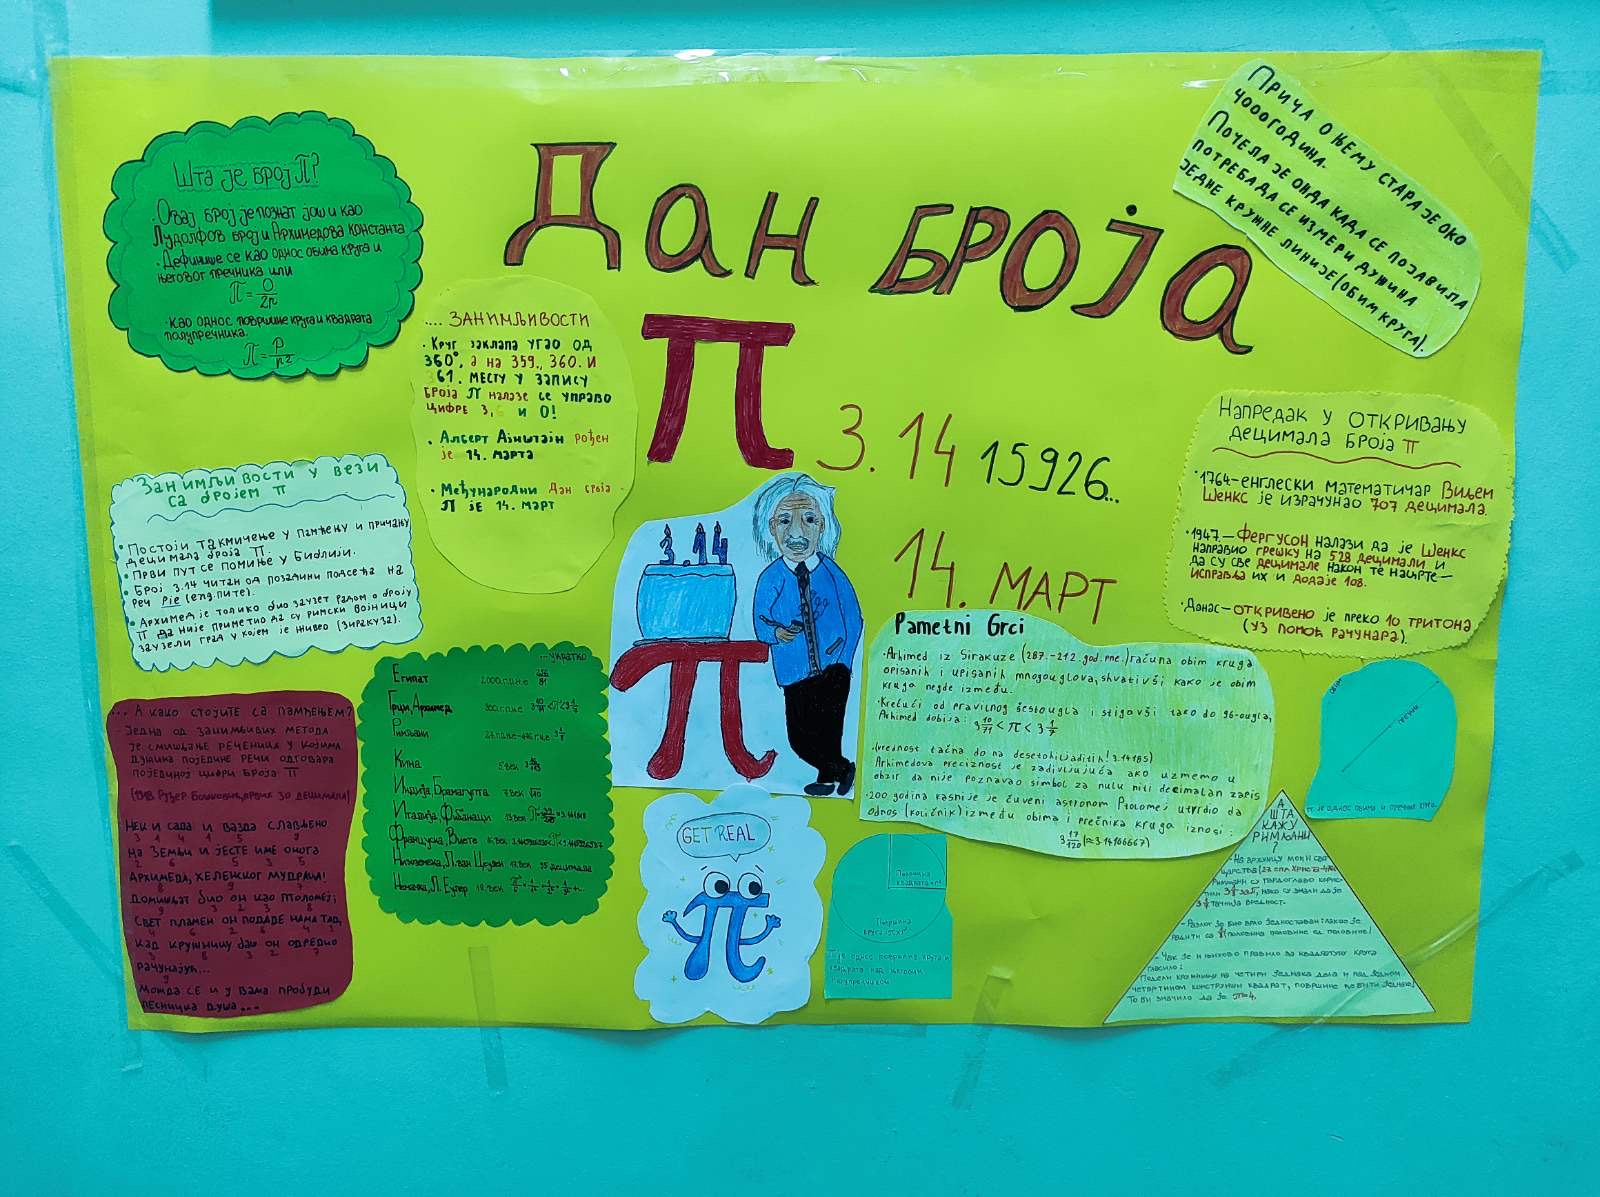 Дан броја
π
3.1415926...
14. март
Шта је број π?
·Овај број је познат још и као
Лудолфов број и Архимедова константа
·Дефинише се као однос обима круга и
његовог пречника или
π=O/2r
·Као однос површине круга и квадрата
полупречника.
π=P/r²
.... Занимљивости
· Круг заклапа угао од
360°, а на 359., 360. и
361. месту у запису
броја π налазе се управо
цифре 3, 6 и 0!
· Алберт Ајнштајн рођен
је 14. марта
· Међународни Дан броја
π је 14. март
Прича о њему стара је око
4000 година.
Почела је онда када се појавила
потреба да се измери дужина
једне кружне линије (обим круга).
Напредак у откривању
децимала броја π
·1764-енглески математичар Виљем
Шенкс је израчунао 707 децимала.
·1947.-Фергусон налази да је Шенкс
направио грешку на 528 децимали и
да су све децимале након те нацрте-
исправља их и додаје 108.
·Данас-откривено је преко 10 тритона
(уз помоћ рачунара).
Занимљивости у вези
са бројем π
• Постоји такмичење у памћењу и причању
децимала броја π.
• Први пут се помиње у Библији.
• Број 3.14 читан од позадини подсећа на
реч Pie (eng. пите).
• Архимед је толико био заузет радом о броју
π да није приметио да су римски војници
заузели град у којем је живео (Сиракуза).
3.14
Pametni Grci
·Arhimed iz Sirakuze (287.-212.god.pne.) računa obim kruga
opisanih i upisanih mnogouglova, shvativši kako je obim
kruga negde između.
·Krećući od pravilnog šestougla i stigavši tako do 96-ougla,
Arhimed dobija: 3 10/71 < π < 3 1/7
·(vrednost tačna do na desetohiljaditih! 3.14185)
Arhimedova preciznost je zadivljujuća ako uzmemo u
obzir da nije poznavao simbol za nulu niti decimalan zapis
·200 godina kasnije je čuveni astronom Ptolomej utvrdio da
odnos (količnik) između obima i prečnika kruga iznosi:
3 17/120 (≈3.14166667)
... укратко
Египат 2000.г.п.н.е. 256/81
Грци, Архимед 300.г.п.н.е. 3 10/71<π<3 1/7
Римљани 3 1/8
Кина 5.век
Индија, Брамагупта 7.век √10
Италија, Фибоначи 13.век
Француска, Виете 16.век
Холандија, Л. ван Цеулен 17.век 35 децимала
Немачка, Л. Еулер 18.век
... А како стојите са памћењем?
Једна од занимљивих метода
је смишљање реченица у којима
дужина поједине речи одговара
појединој цифри броја π
Нек и сада и вазда слављено
3 1 4 1 5 9
на Земљи и јесте име онога
2 6 5 3 5
Архимеда, хеленског мудраца!
8 9 7
Доминират био он као Птоломеј;
9 3 2 3 8
Свет пламен он подаде нама тад,
4 6 2 6 4 3
Кад кружницу баш он одредио
3 8 3 2 7
рачунајућ...
9
Можда се и у вама пробуди
песничка душа ...
GET REAL
π
Површина
квадрата=r²
Површина
круга=πxr²
π је однос површине круга и
квадрата над његовим
полупречником
Обим
пречник
π је однос обима и пречника круга.
А
шта
кажу
Римљани
?
- На врхунцу моћи свог
царства
Римљани су тврдоглаво корис-
тили 3 1/8, иако су знали да је
3 1/7 тачнија вредност.
- Разлог је био врло једноставан: лакше је
радити са 1/8 (половина половине од половине)
- Чак је и њихово правило за квадратуру круга
гласило:
Подели кружницу на четири једнака дела и над једном
четвртином конструиши квадрат, површине ће бити једнаке!
То би значило да је π=4.